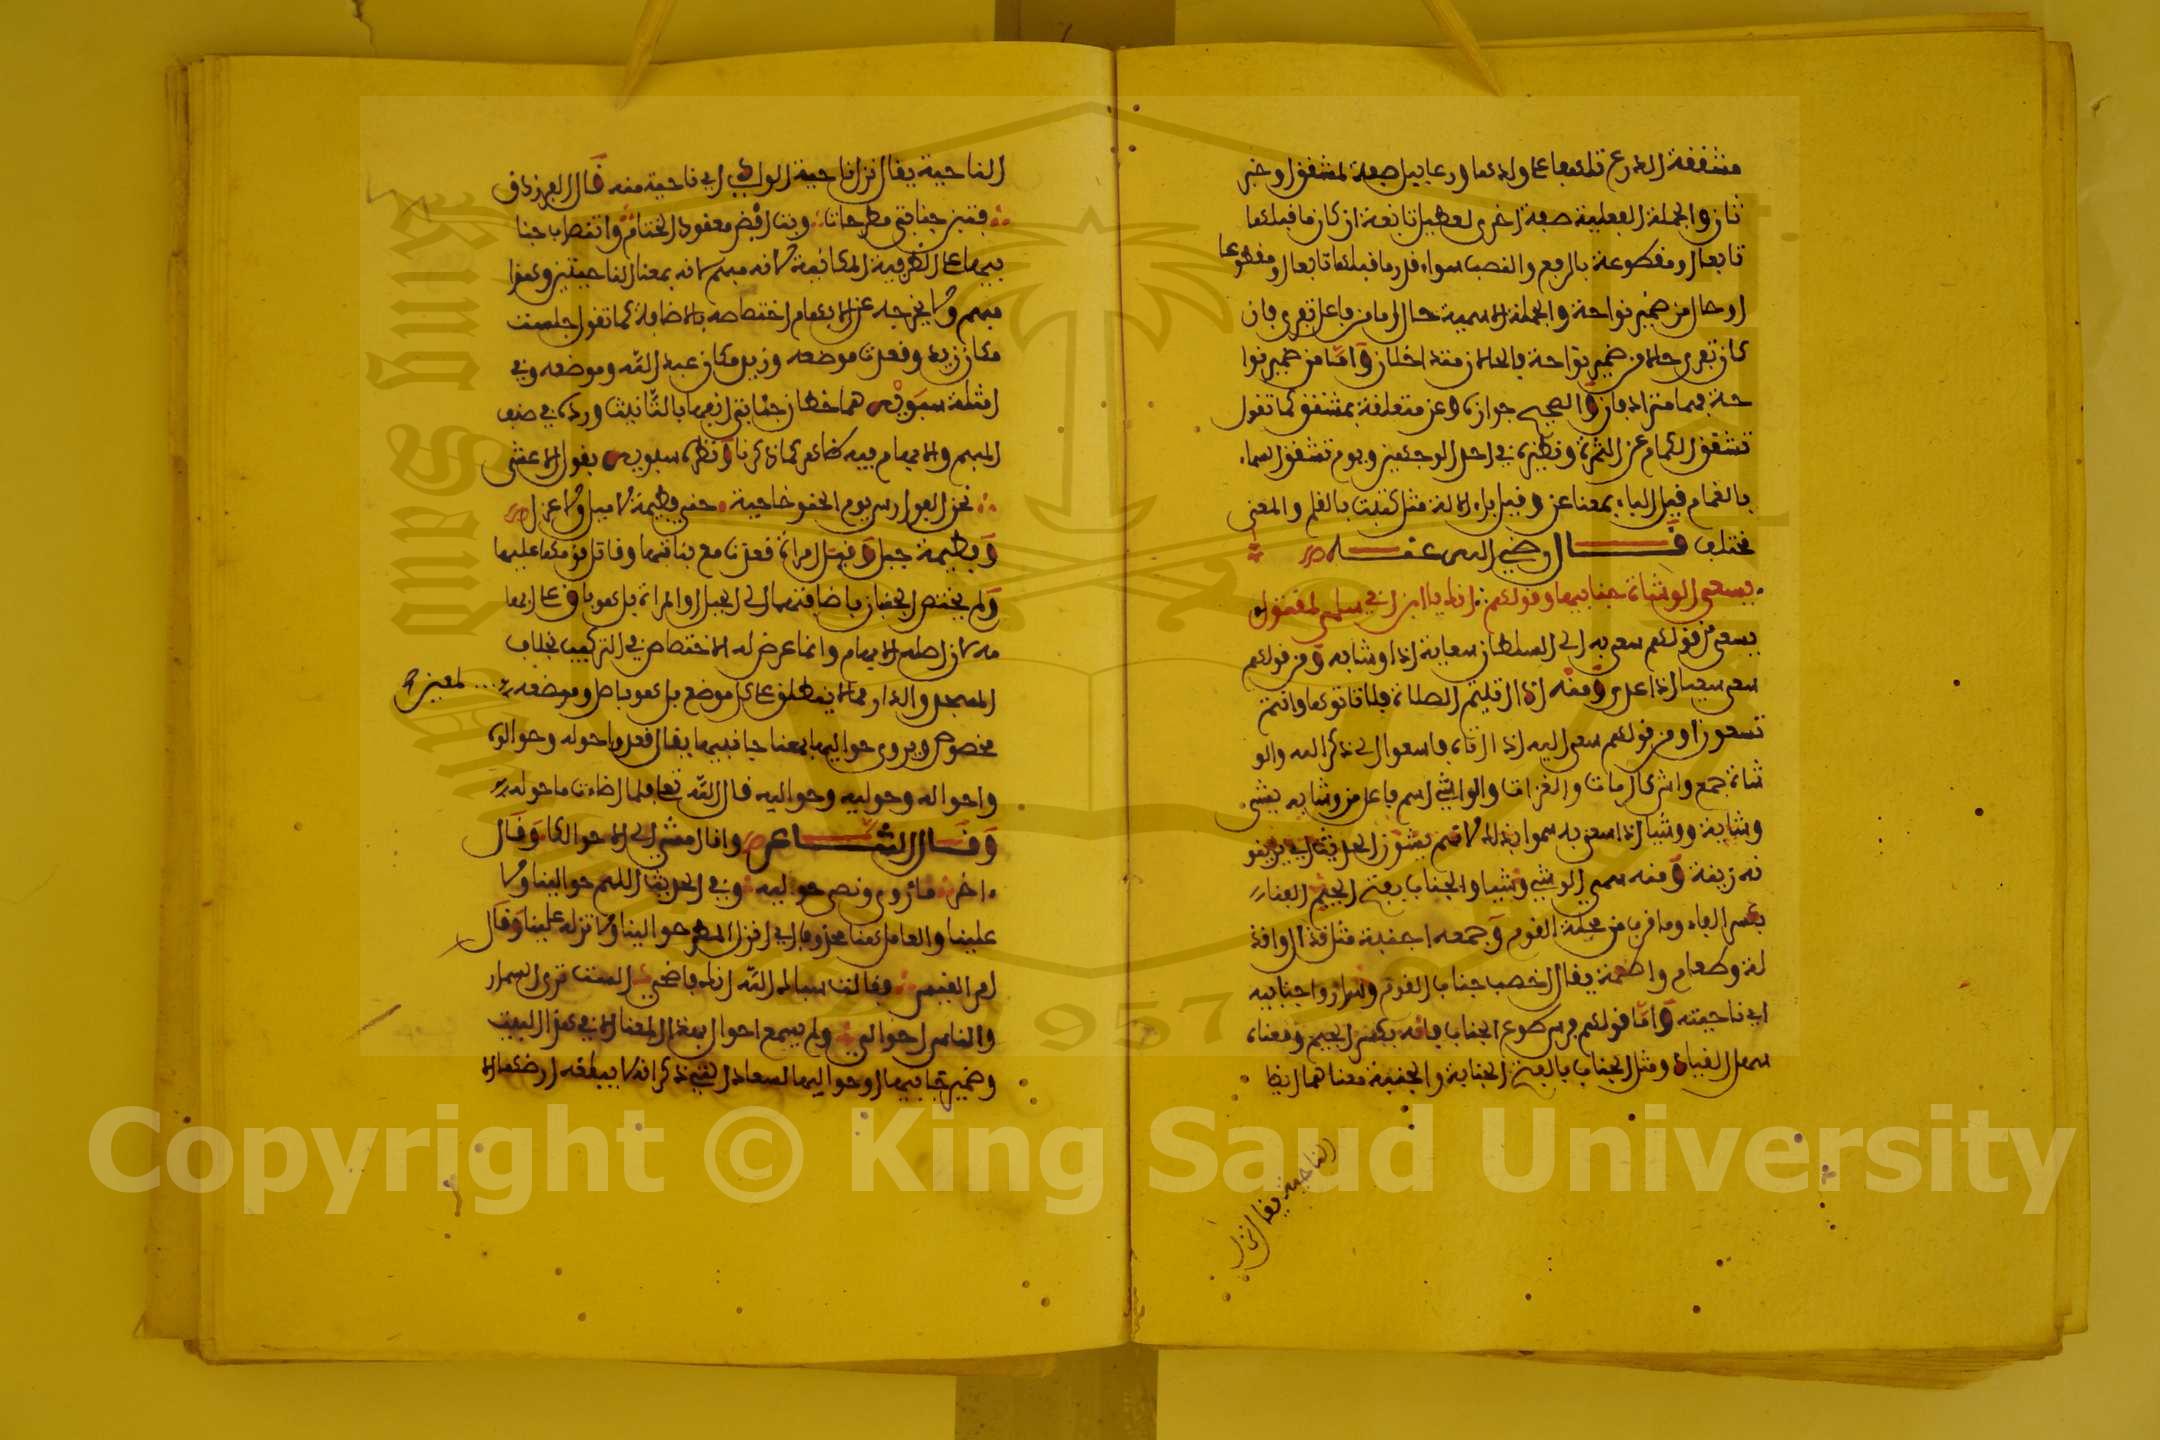 مشققة الدرع قلت هما على ولدها ورعابيل صفة لمشقق او خبر
ثان والجملة الفعلية صفة اخرى لعيطل تابعة ان كان ما قبلها
تابعا او مقطوعة بالرفع والنصب سواء قدر ما قبلها تابعا او مقطوعا
او حال من ضمير نواحة والجملة الاسمية حال اما من فاعل تفرى فان
كان تفرى حالا من ضمير نواحة فالحالان متداخلان واما من ضمير نوا
حة فهما مترادفان والصحيح جوازه وعن متعلقة بمشقق كما تقول
تشقق الكمام عن الثمرة ونظيره في احد الوجهين ويوم تشقق السماء
بالغمام قيل الباء بمعنا عن وقيل باء الالة مثل كتبت بالقلم والمعنى
مختلف قال رضي الله عنه
يسعى الوشاة جنابيها وقولهم انك يا ابن ابي سلمى لمقتول
يسعى من قولهم سعى به الى السلطان سعاية اذا وشا به ومن قولهم
سعى سعيا اذا عدى ومنه اذا اتيتم الصلاة فلا تاتوها وانتم
تسعون او من قولهم سعى اليه اذا اتاه فاسعوا الى ذكر الله والو
شاة جمع واش كالرمات والغزات والواشي اسم فاعل من وشا به يشي
وشاية ووشيا اذا سعى به سموا بذلك لانهم يشون الحديث اي يزينو
نه زينة ومنه سمي الوشي وشيا والجناب بفتح الجيم الفناء
بكسر الفاء وما قرب من محلة القوم وجمعه اجنبة مثل قذال واقذ
لة وطعام واطعمة يقال اخصب جناب القوم وساروا جنابيه
اي ناحيته واما قولهم فرس طوع الجناب فانه بكسر الجيم ومعناه
سهل القياد ومثل الجناب بالفتح الجنابة والجنبة معناهما ايضا
الناحية يقال نزل
الناحية يقال نزل ناحية الوادي اي ناحية منه قال الفرزدق
فبتن جنابتي مطرحات وبت افض مغفود الختام وانتصاب جنا
بيها على الظرفية المكانية لانه مبهم لانه بمعنا الناحيتين وهذا
مبهم ولا يخرجه عن الابهام اختصاصه بالاضافة كما تقول جلست
مكان زيد وقعدت موضعه وزيد مكان عبد الله وموضعه وفي
امثلة سبويه هما خطان جنابتي انفها بالتانيث ورده في صف
المبهم والابهام فيه ظاهر كما ذكرنا ونظره سبويه بقول الاعشى
نحن الفوارس يوم الحنو ضاحية جنبي فطيمة لا ميل ولا عزل
وفطيمة جبل وقيل امراة قعدن مع بناتها وقاتل قومها عليها
ولم يختص الجنبان باضافتهما الى الجبل او المراة بل هو باق على ابها
مه لان اصله الابهام وانما عرض له الاختصاص في التركيب بخلاف
المسجد والدار فما لا ينطلق على كل موضع بل هو باصل وموضعه لمعين
مخصوص ويروى حواليها بمعنا جانبيها يقال قعدوا حوله وحواله
واحواله وحوليه وحواليه قال الله تعلى فلما اضاءت ما حوله
وقال الشاعر وانا امشي الدالى حوالكا وقال
اخر ماء روى ونصي حوليه وفي الحديث اللهم حوالينا ولا
علينا والعامل هنا محذوف اي انزل المطر حوالينا ولا تنزله علينا وقال
امر القيس فقالت سباك الله انك فاضحي الست ترى السمار
والناس احوالي ولم يسمع احوال بهذا المعنا الا في هذا البيت
وضمير جنابيها او حواليها لسعاد التي ذكر انه لا يبلغه ارضها الا